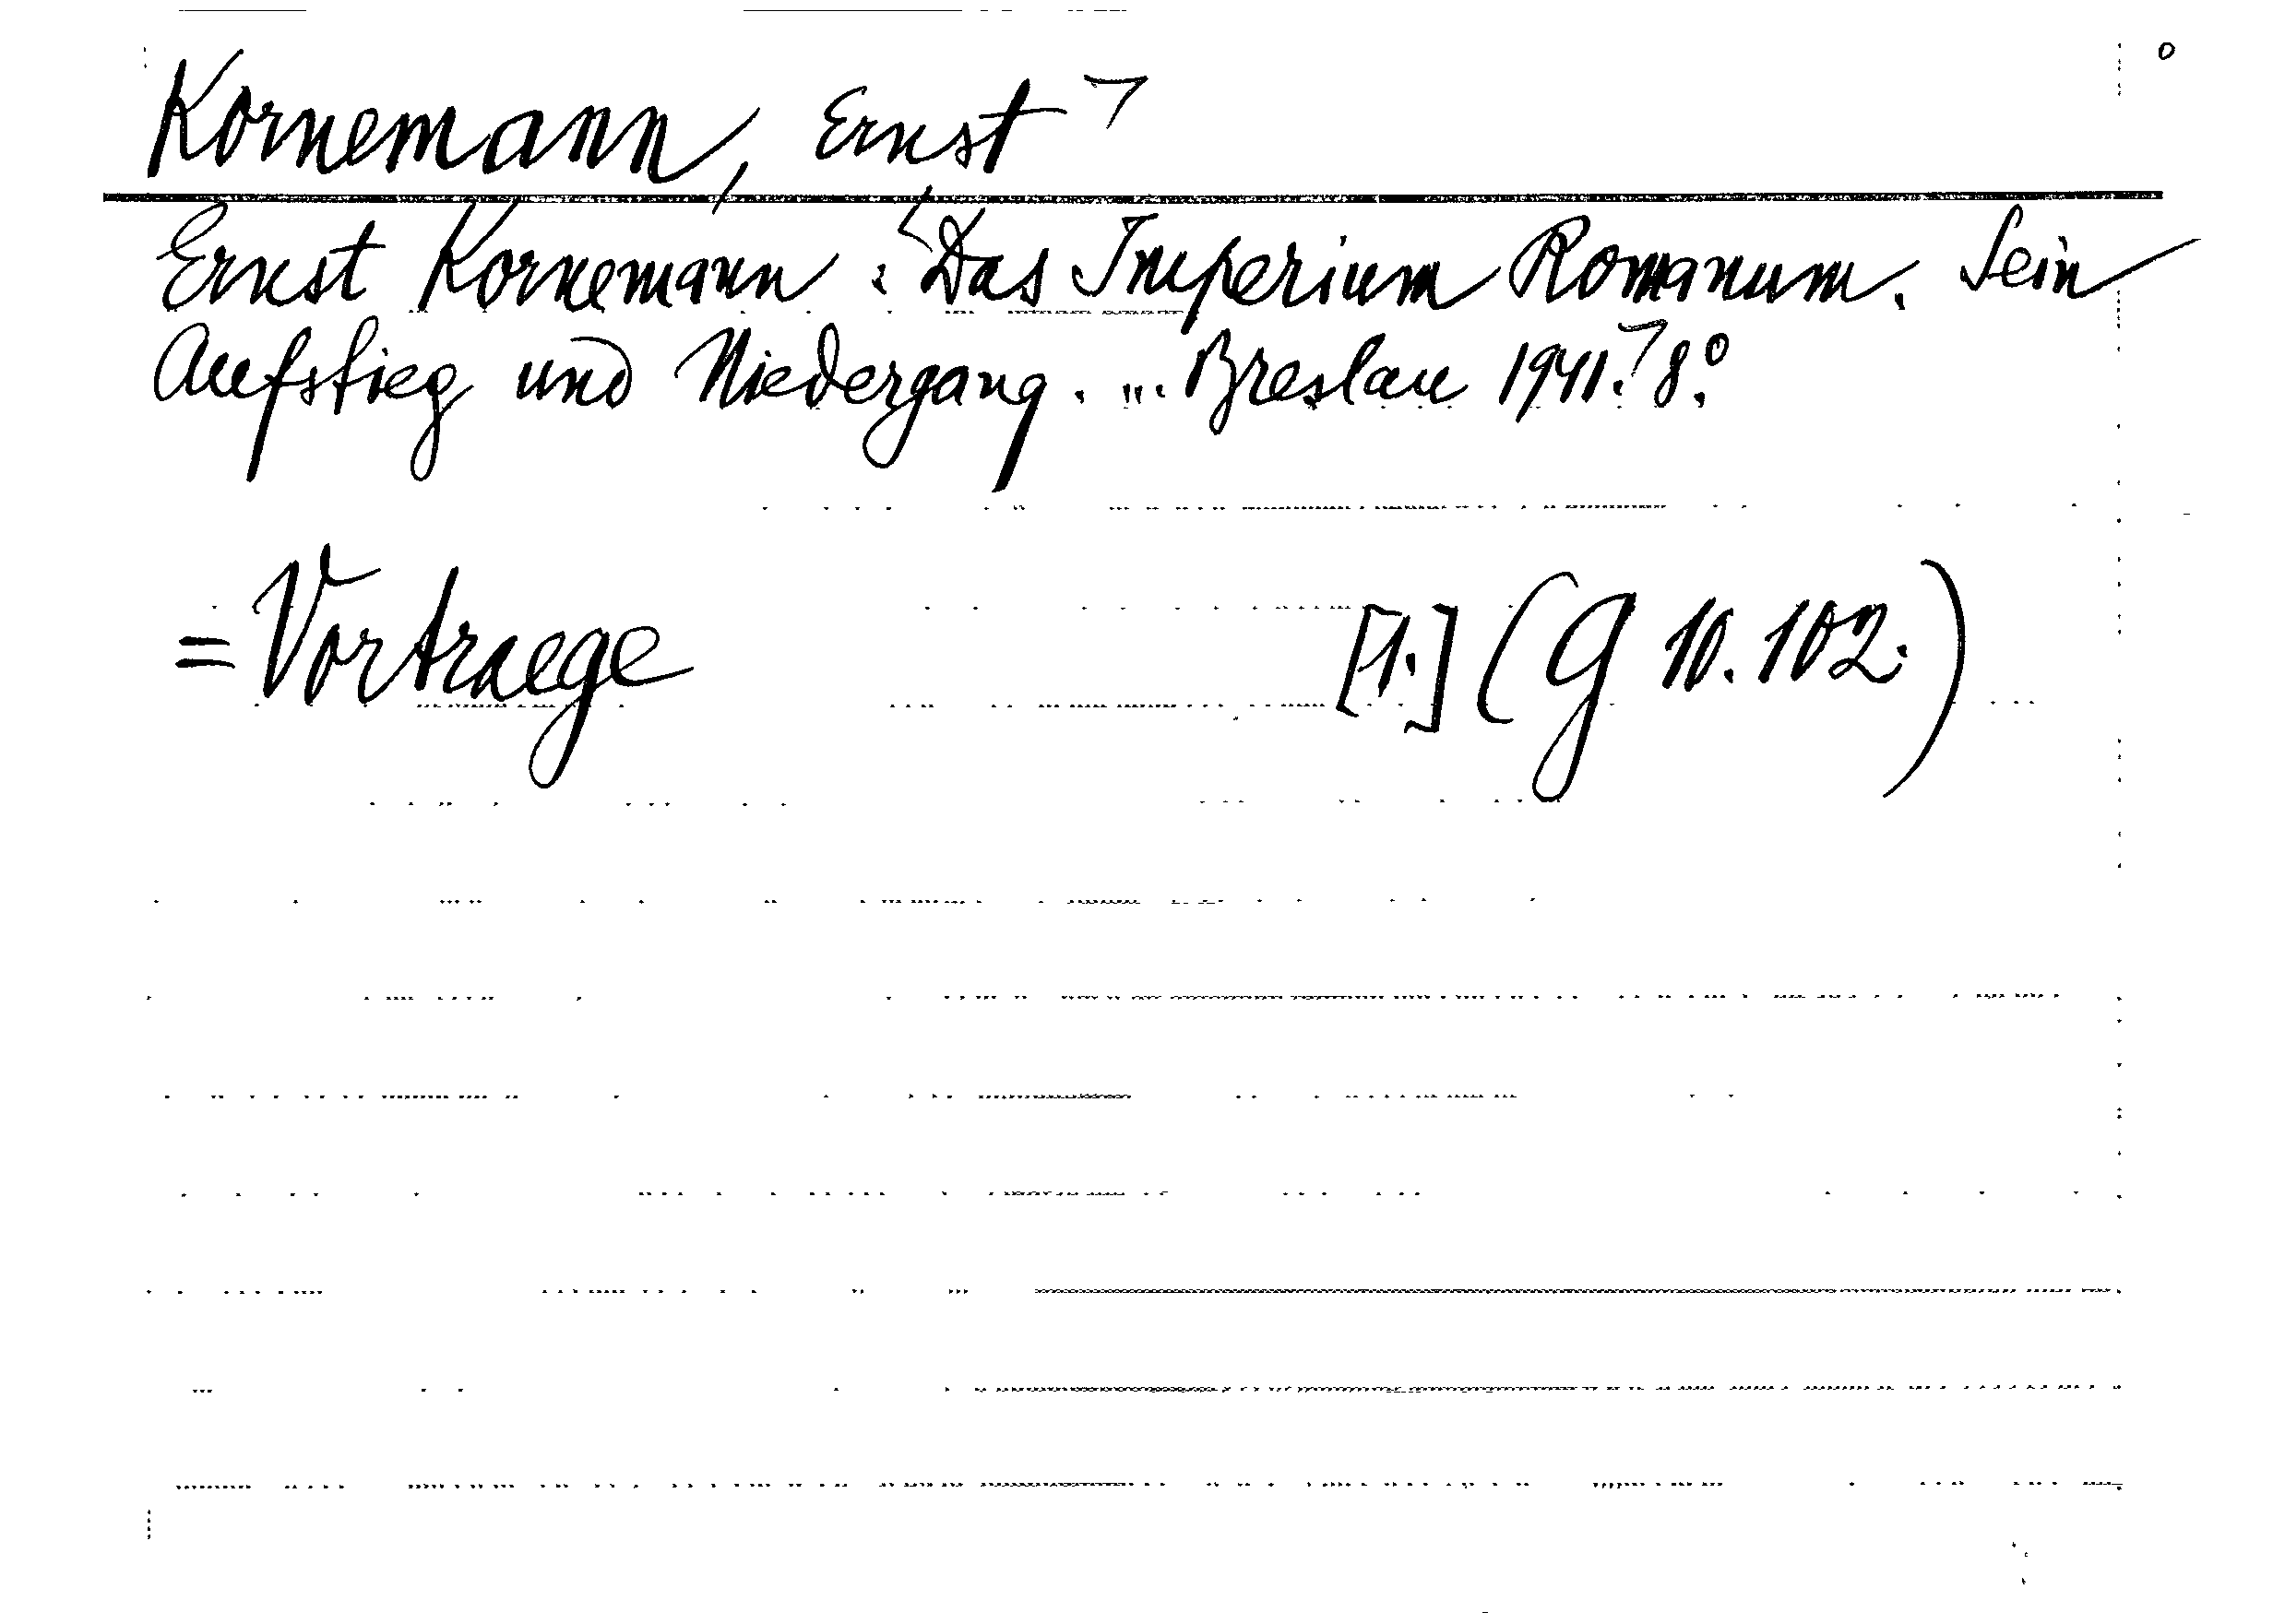 Kornemann, Ernst ¬
Ernst Kornemann: Das Imperium Romanum. Sein
Aufstieg und Niedergang. ... Breslau 1941. ¬ 8°.
= Vortraege [1.] (G 10.102.)